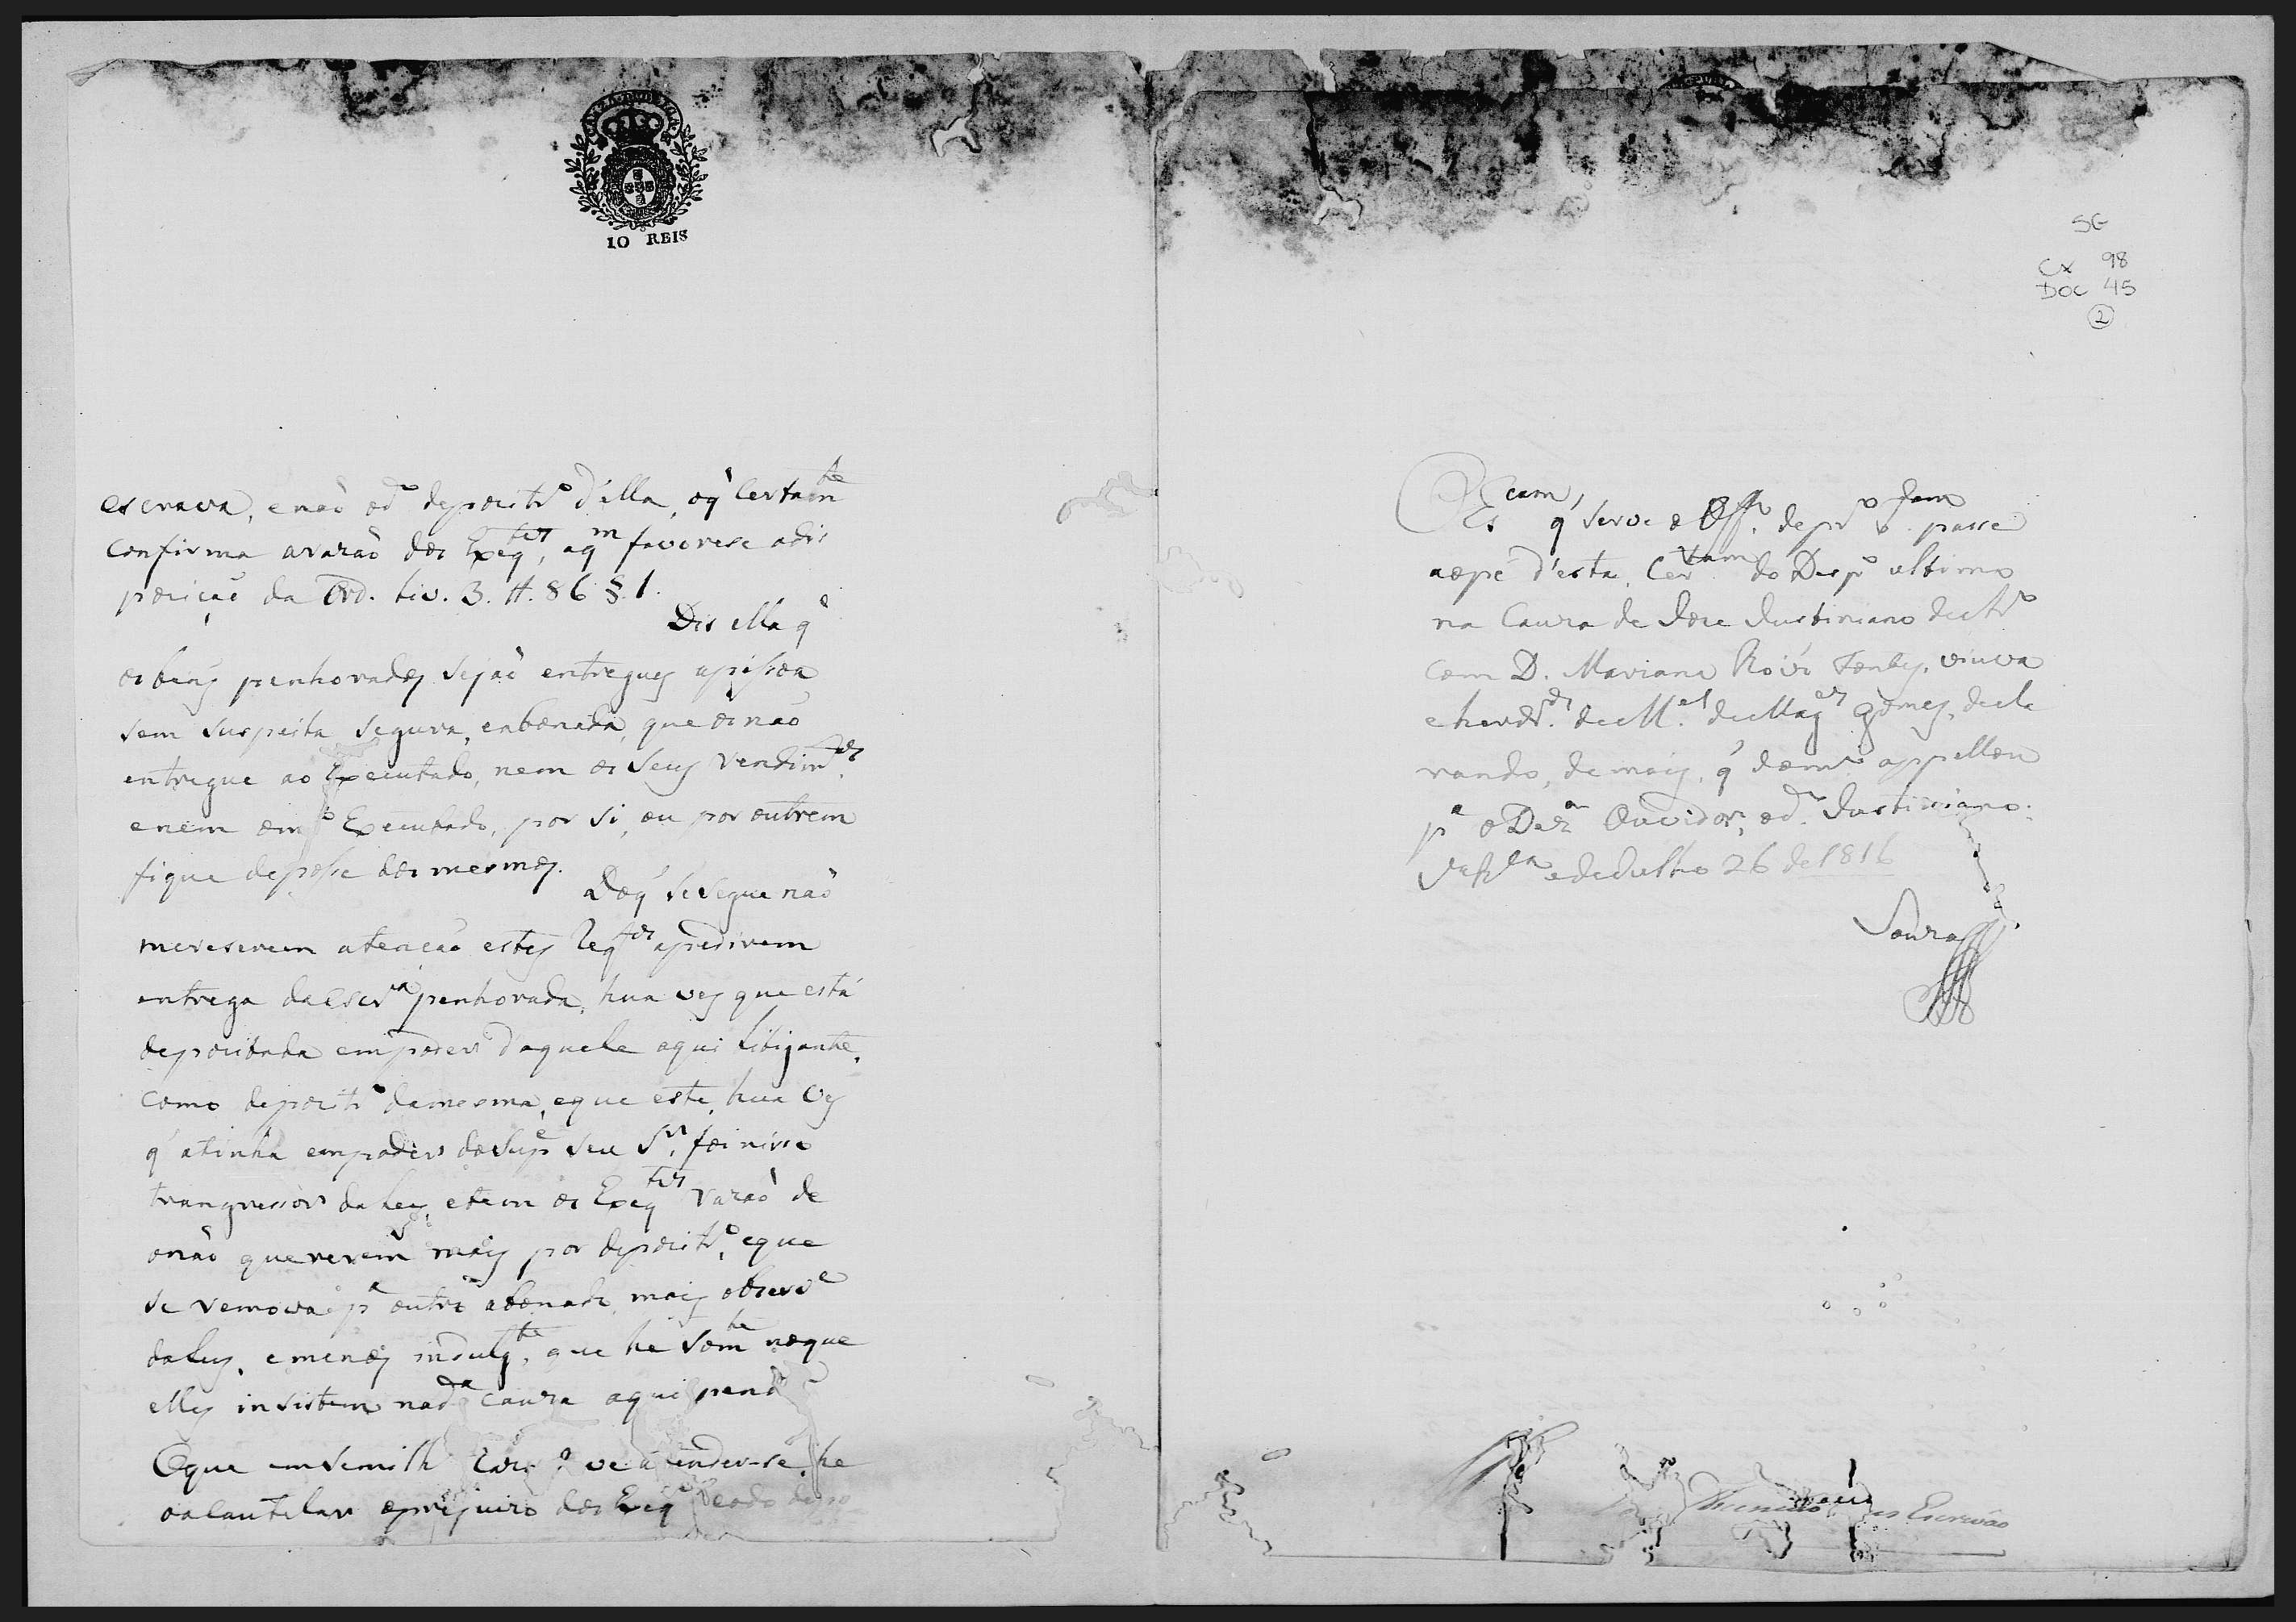 10 REIS
escrava, e naõ o d.º deposit.º d'ella, o q̃ certam.te
confirma a razaõ dos Exeq.tes, a q.m favorese a dis
poziçaõ da Ord. Liv. 3. tt. 86 § 1.
Dis ella q̃
os bens penhorados sejaõ entregues a pessoa
sem suspeita segura, e abonada, que os naõ
entregue ao Executado, nem os seus rendim.tos
e nem o m.º Executado, por si, ou por outrem
fique de posse dos mesmos.
Do q' se segue naõ
mereserem atençaõ estes Req.tes a pedirem
entrega da escr.a penhorada, hua ves que está
depozitada em poder d'aquele aqui Litigante,
como deposit.º da mesma, e que este, hua ves
q' a tinha em poder do Sup.e seu S.r, foi nisso
trangressor da Ley, e tem os Exeq.tes razaõ de
o naõ quererem mais por deposit.º, e que
se remova p.a outro abonado, mais observ.e
da Ley, e menos indulg.te, que he som.te no que
elles insistem na d.a cauza aqui pend
O que em semilh ender-se, he
o acautelar o prejuizo dos Exeq
SG
Cx 98
DOC 45
2
O Escam, q' serve o Off.º de pr.º passe
ao pe d'esta, Cer do Desp.º ultimo
na Cauza de Joze Justiniano de
com D. Mariana viuva
e herdr.os de M.el de Mag.es Gomes, decla
rando, de mais, q' do m.º appellou
p.a o Dez.or Ouvidor, o d.º Justiniano.
de Julho 26 de 1816
Souza
Escrivão